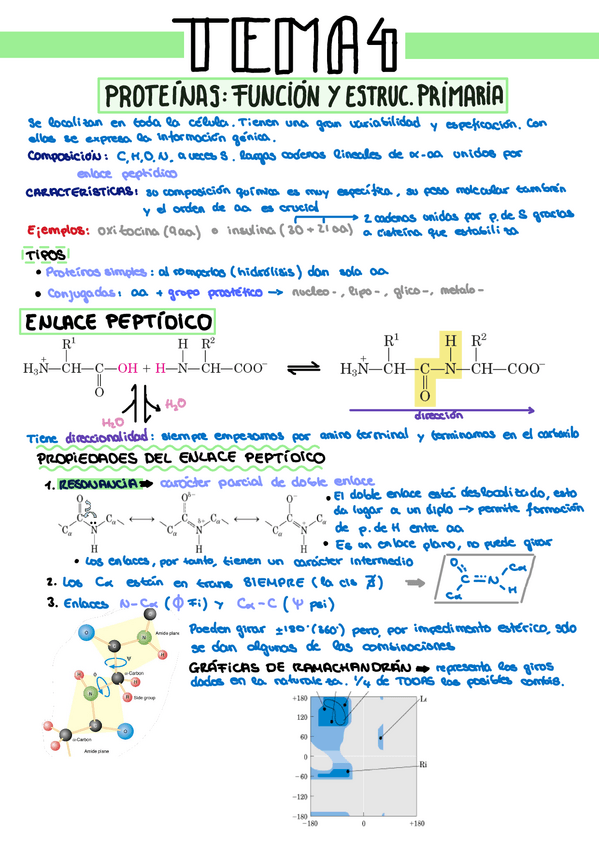 TEMA 4
PROTEÍNAS: FUNCIÓN Y ESTRUC. PRIMARIA
Se localizan en toda la célula. Tienen una gran variabilidad y espeficación. Con
ellas se expresa la información génica.
Composición: C, H, O, N, a veces S. largas cadenas lineales de α-aa unidos por
enlace peptídico
CARACTERÍSTICAS: su composición química es muy específica, su peso molecular también
y el orden de aa es crucial
Ejemplos: oxitocina (9aa) o insulina (30 + 21 aa)
2 cadenas unidas por p. de S gracias
a cisteína que estabiliza
TIPOS
• Proteínas simples: al romperlas (hidrólisis) dan solo aa
• Conjugadas: aa + grupo prostético → nucleo-, lipo-, glico-, metalo-
ENLACE PEPTÍDICO
R¹ H R² R¹ H R²
H₃N⁺—CH—C—OH + H—N—CH—COO⁻ ⇌ H₃N⁺—CH—C—N—CH—COO⁻
O O
H₂O H₂O
dirección
Tiene direccionalidad: siempre empezamos por amino terminal y terminamos en el carboxilo
PROPIEDADES DEL ENLACE PEPTÍDICO
1. RESONANCIA → carácter parcial de doble enlace
O Oδ⁻ O⁻
C Cα C Cα C Cα
Cα N Cα Nδ⁺ Cα N⁺
H H H
• El doble enlace está deslocalizado, esto
da lugar a un diplo → permite formación
de p. de H entre aa
• Es un enlace plano, no puede girar
• Los enlaces, por tanto, tienen un carácter intermedio
2. Los Cα están en trans SIEMPRE (la cis ∄) →
O Cα
C = N
Cα H
3. Enlaces N-Cα (ϕ Fi) y Cα-C (Ψ psi)
Pueden girar ±180° (360°) pero, por impedimento estérico, solo
se dan algunas de las combinaciones
GRÁFICAS DE RAMACHANDRÁN → representa los giros
dados en la naturaleza. 1/4 de TODAS las posibles combis.
Amide plane
O
C
N
H
Ψ
ϕ
α-Carbon
H
C
H
N
R
Side group
H
C
O
C
α-Carbon
Amide plane
+180
120
60
0
−60
−120
−180
−180 0 +180
Le
Ri